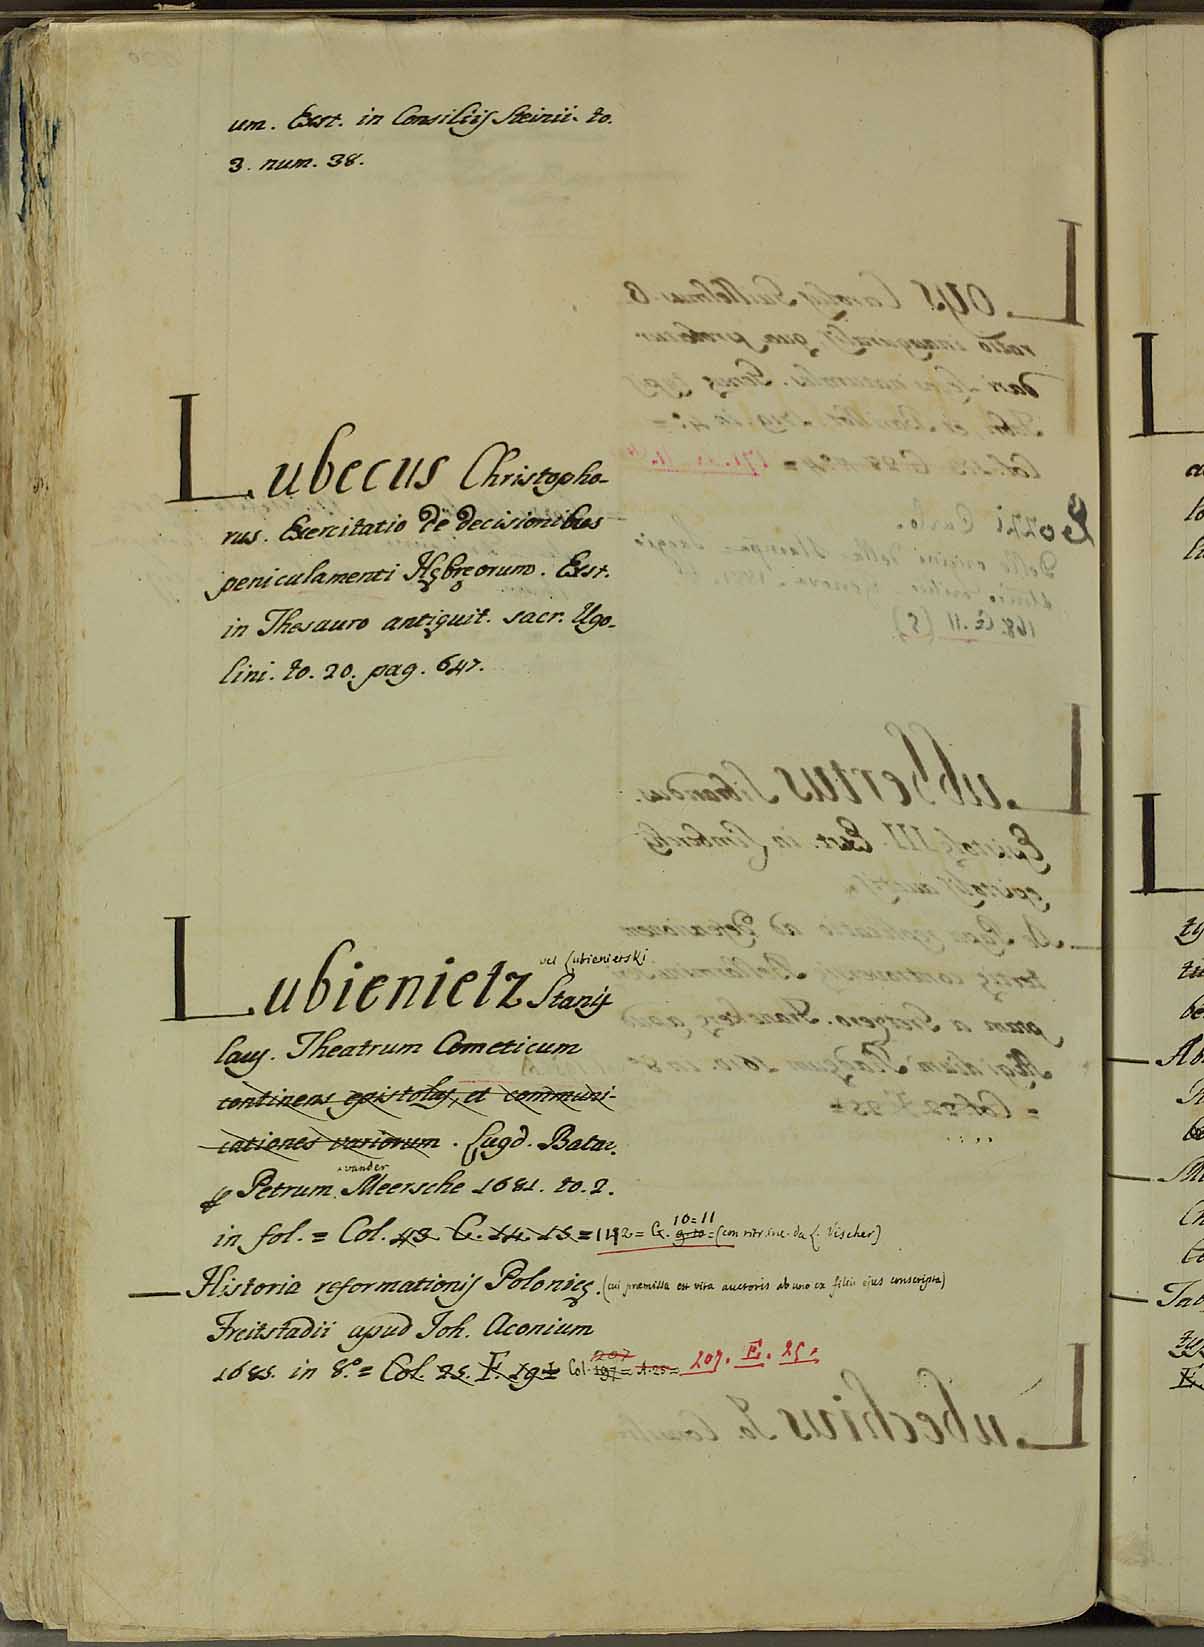 um. Exst. in Consilijs Steinii. to.
3. num. 38.
Lubecus Christopho-
rus. Exercitatio de decisionibus
peniculamenti Hębręorum. Exst.
in Thesauro antiquit. sacr. Ugo-
lini. to. 20. pag. 647.
vel Lubienierski
Lubienietz Stanis-
laus. Theatrum Cometicum
continens epistolas, et communi-
cationes variorum. Lugd. Batav.
vander
Petrum Meersche 1681. to. 2.
10=11
in fol. = Col. 43. C. 14. 15 = 1142 = G. 9-10 = (con ritr. inc. da L. Vischer)
Historia reformationis Polonicę. (cui præmissa est vita auctoris ab uno ex filiis ejus conscripta)
Freitstadii apud Joh. Aconium
207
1685. in 8.º = Col. 25. F. 19 Col. 197 = A. 25 = 207. E. 25.